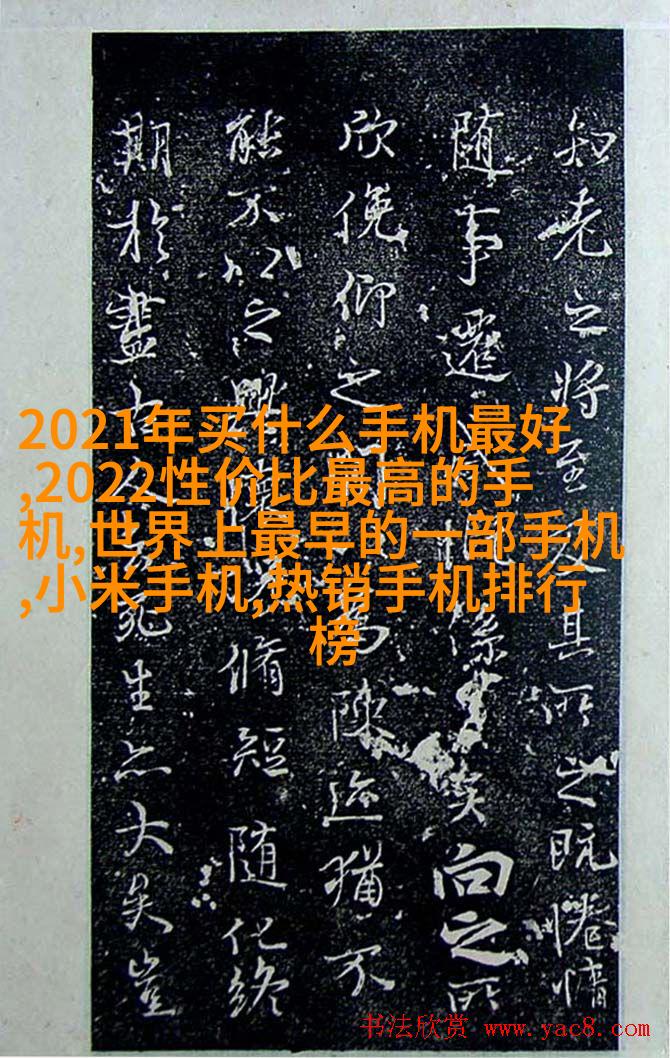 知老之將至及其所之既惓情
随事遷感慨係之矣向之所
欣俛仰之間以為陳迹猶不
能不以之興懷況脩短随化終
期於盡古人云死生亦大矣豈
2021年买什么手机最好
,2022性价比最高的手
机,世界上最早的一部手机
,小米手机,热销手机排行
榜
书法欣赏 www.yac8.com